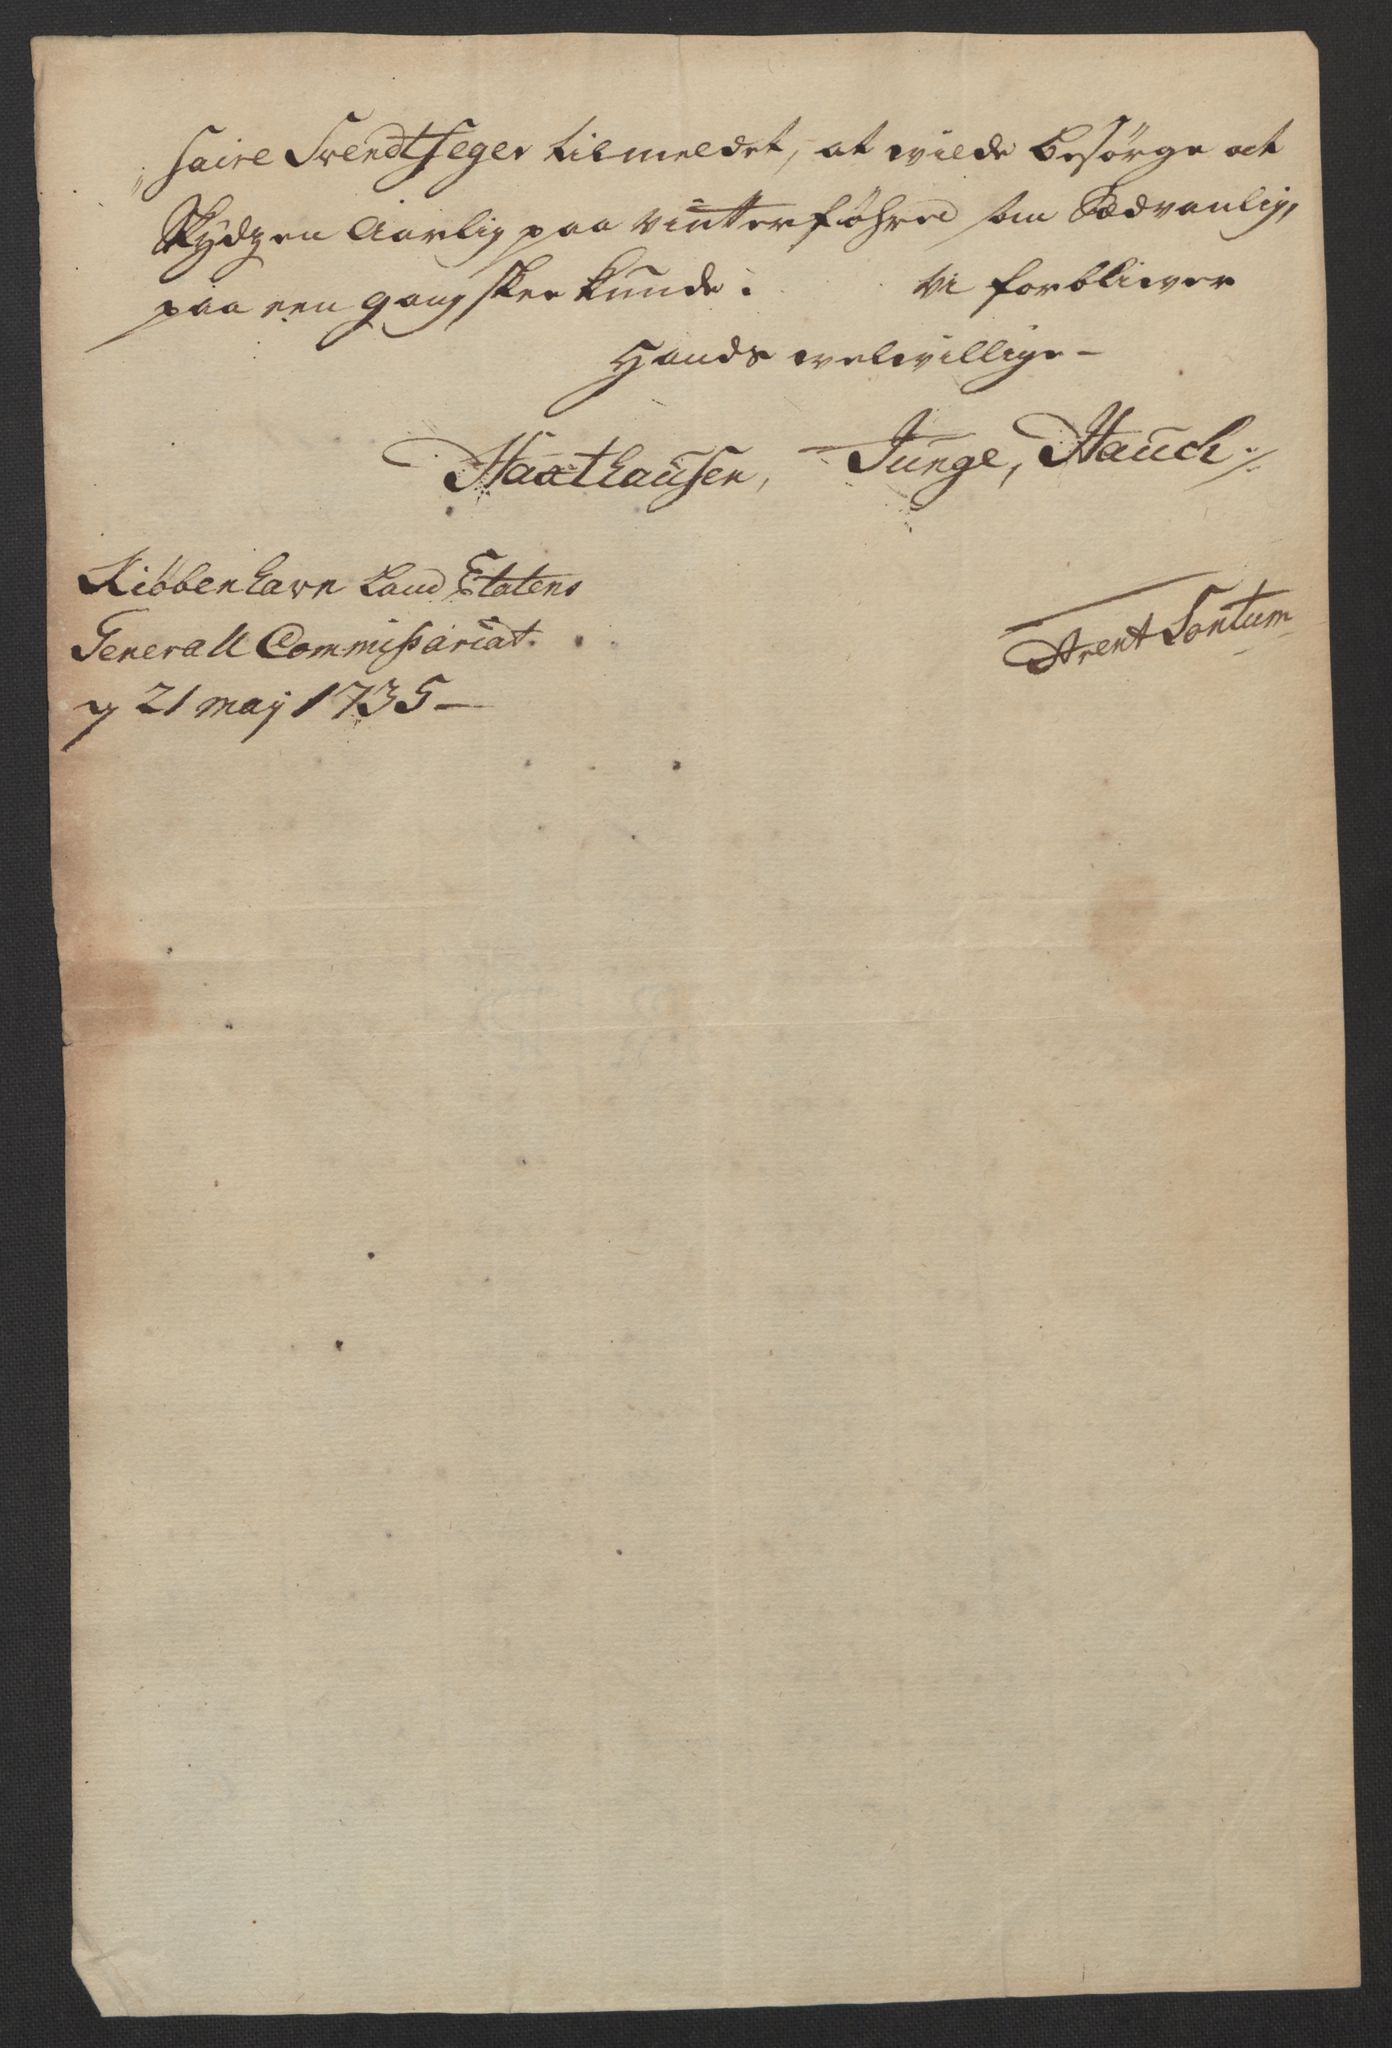 saire Svendtseger tilmeldet, at wilde besørge at
Skydzen Aarlig paa vinterføhred som Sædvanlig,
paa een gang skee kunde. Vi forbliver
Hands welwillige
Haxthausen, Junge, Hauch.
Kiøbbenhavn Land Etatens
Generall Commissariat.
21 maij 1735
Arent Sontum